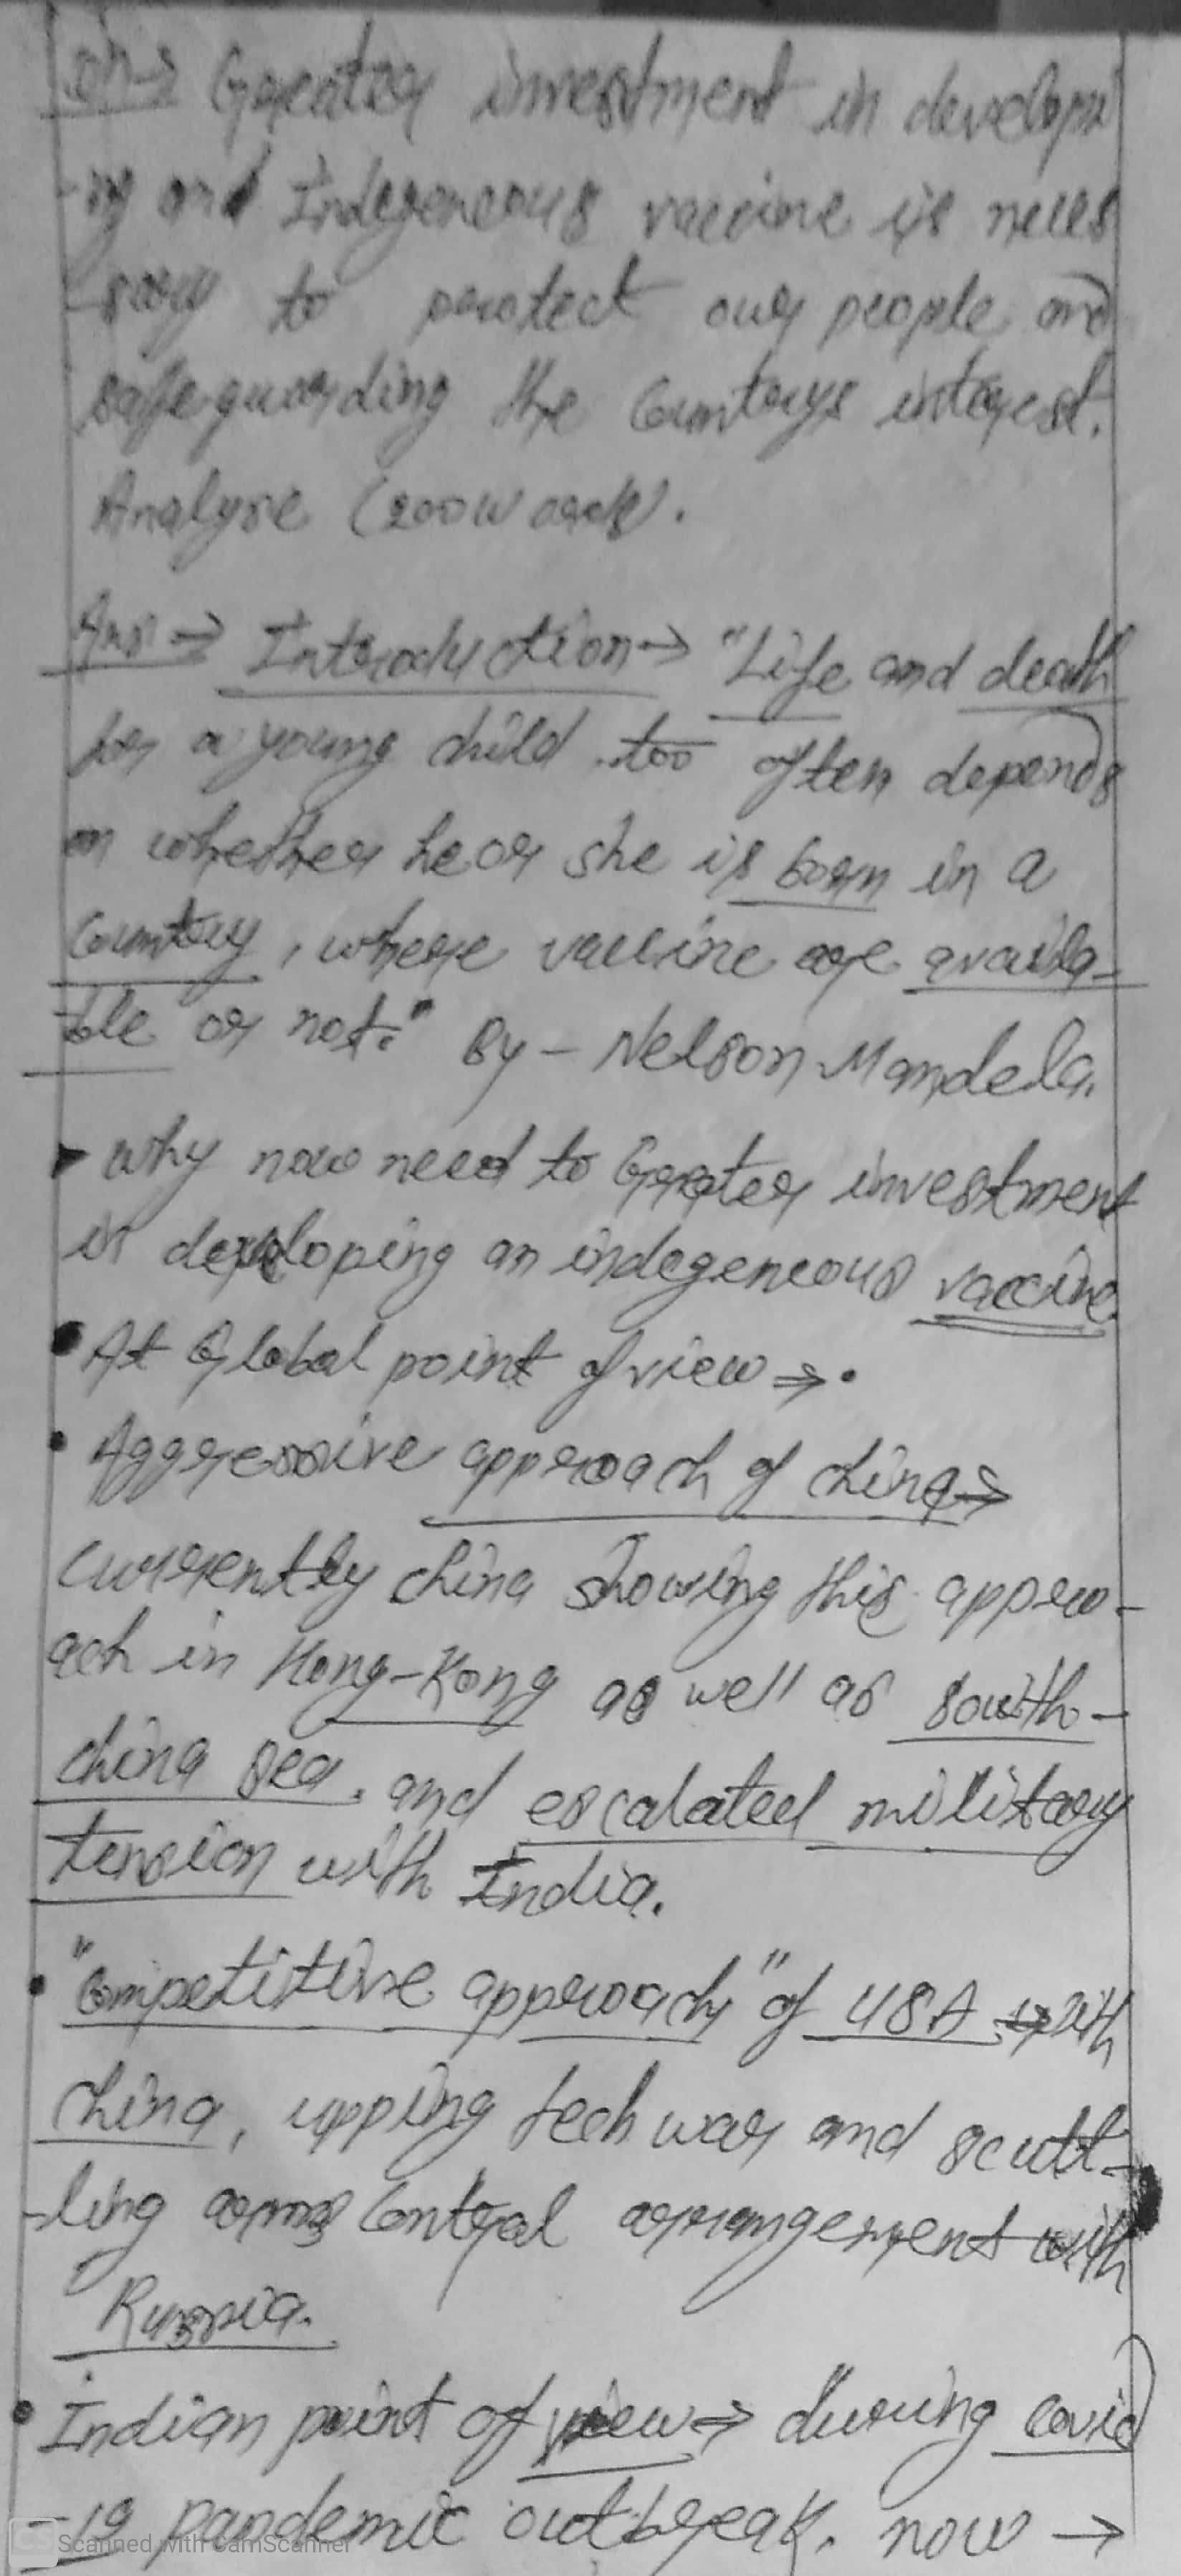 Qn→ Greater investment in developi
-ng and Indegeneous vaccine is neces
-sary to protect our people and
safeguarding the Countrys interest.
Analyse (200 words).
Ans⇒ Introduction→ "Life and death
for a young child too often depends
on whether he or she is born in a
Country, where vaccine are availa-
-ble or not." By - Nelson Mandela.
Why now need to Greater investment
in developing an indegeneous vaccine
• At Global point of view ⇒•
• Aggressive approach of china→
Currently china showing this appro-
ach in Hong-Kong as well as south-
china sea, and escalated military
tension with India.
• "Competitive approach" of USA with
China, upping tech war and scutt-
-ling arms Control arrangement with
Russia.
• Indian point of view⇒ during covid
-19 pandemic outbreak. now →
CS Scanned with CamScanner